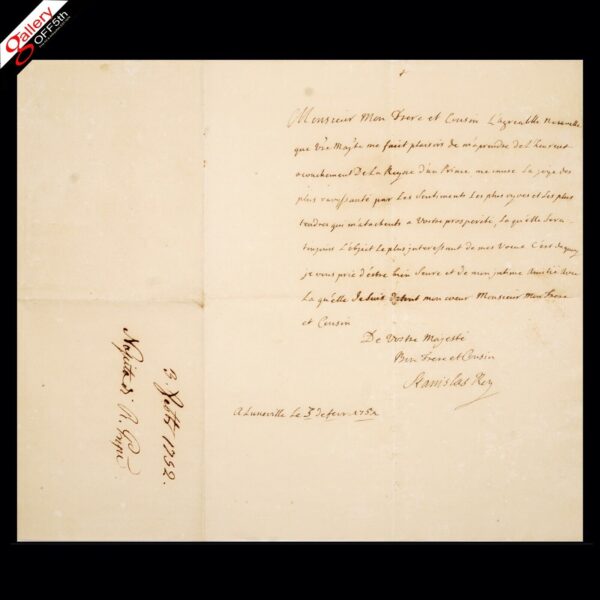 gallery
OFF5th
Monsieur Mon Frere et Cousin L'agreable Nouvelle
que Vre Majté me fait plaisir de m'aprendre de L'heureux
acouchement De La Reyne d'un Prince me cause La joye des
plus ravissante par Les Sentiments Les plus vives et Les plus
tendres qui m'atachent a Vostre prosperité, La qu'elle Sera
toujours L'objet Le plus interessant de mes Voeux C'est de quoy
je vous prie d'estre bien Seure et de mon intime Amitié avec
La qu'elle Je Suis de tout mon coeur Monsieur Mon Frere
et Cousin
De Vostre Majesté
Bon Frere et Cousin
Stanislas Roy
A Luneville Le 3 de fevr. 1752
3 1752.
di